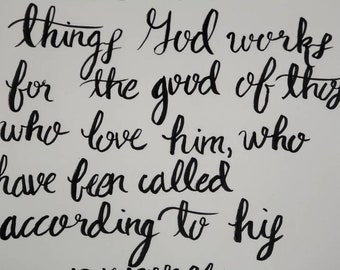 things God works
for the good of those
who love him, who
have been called
according to his